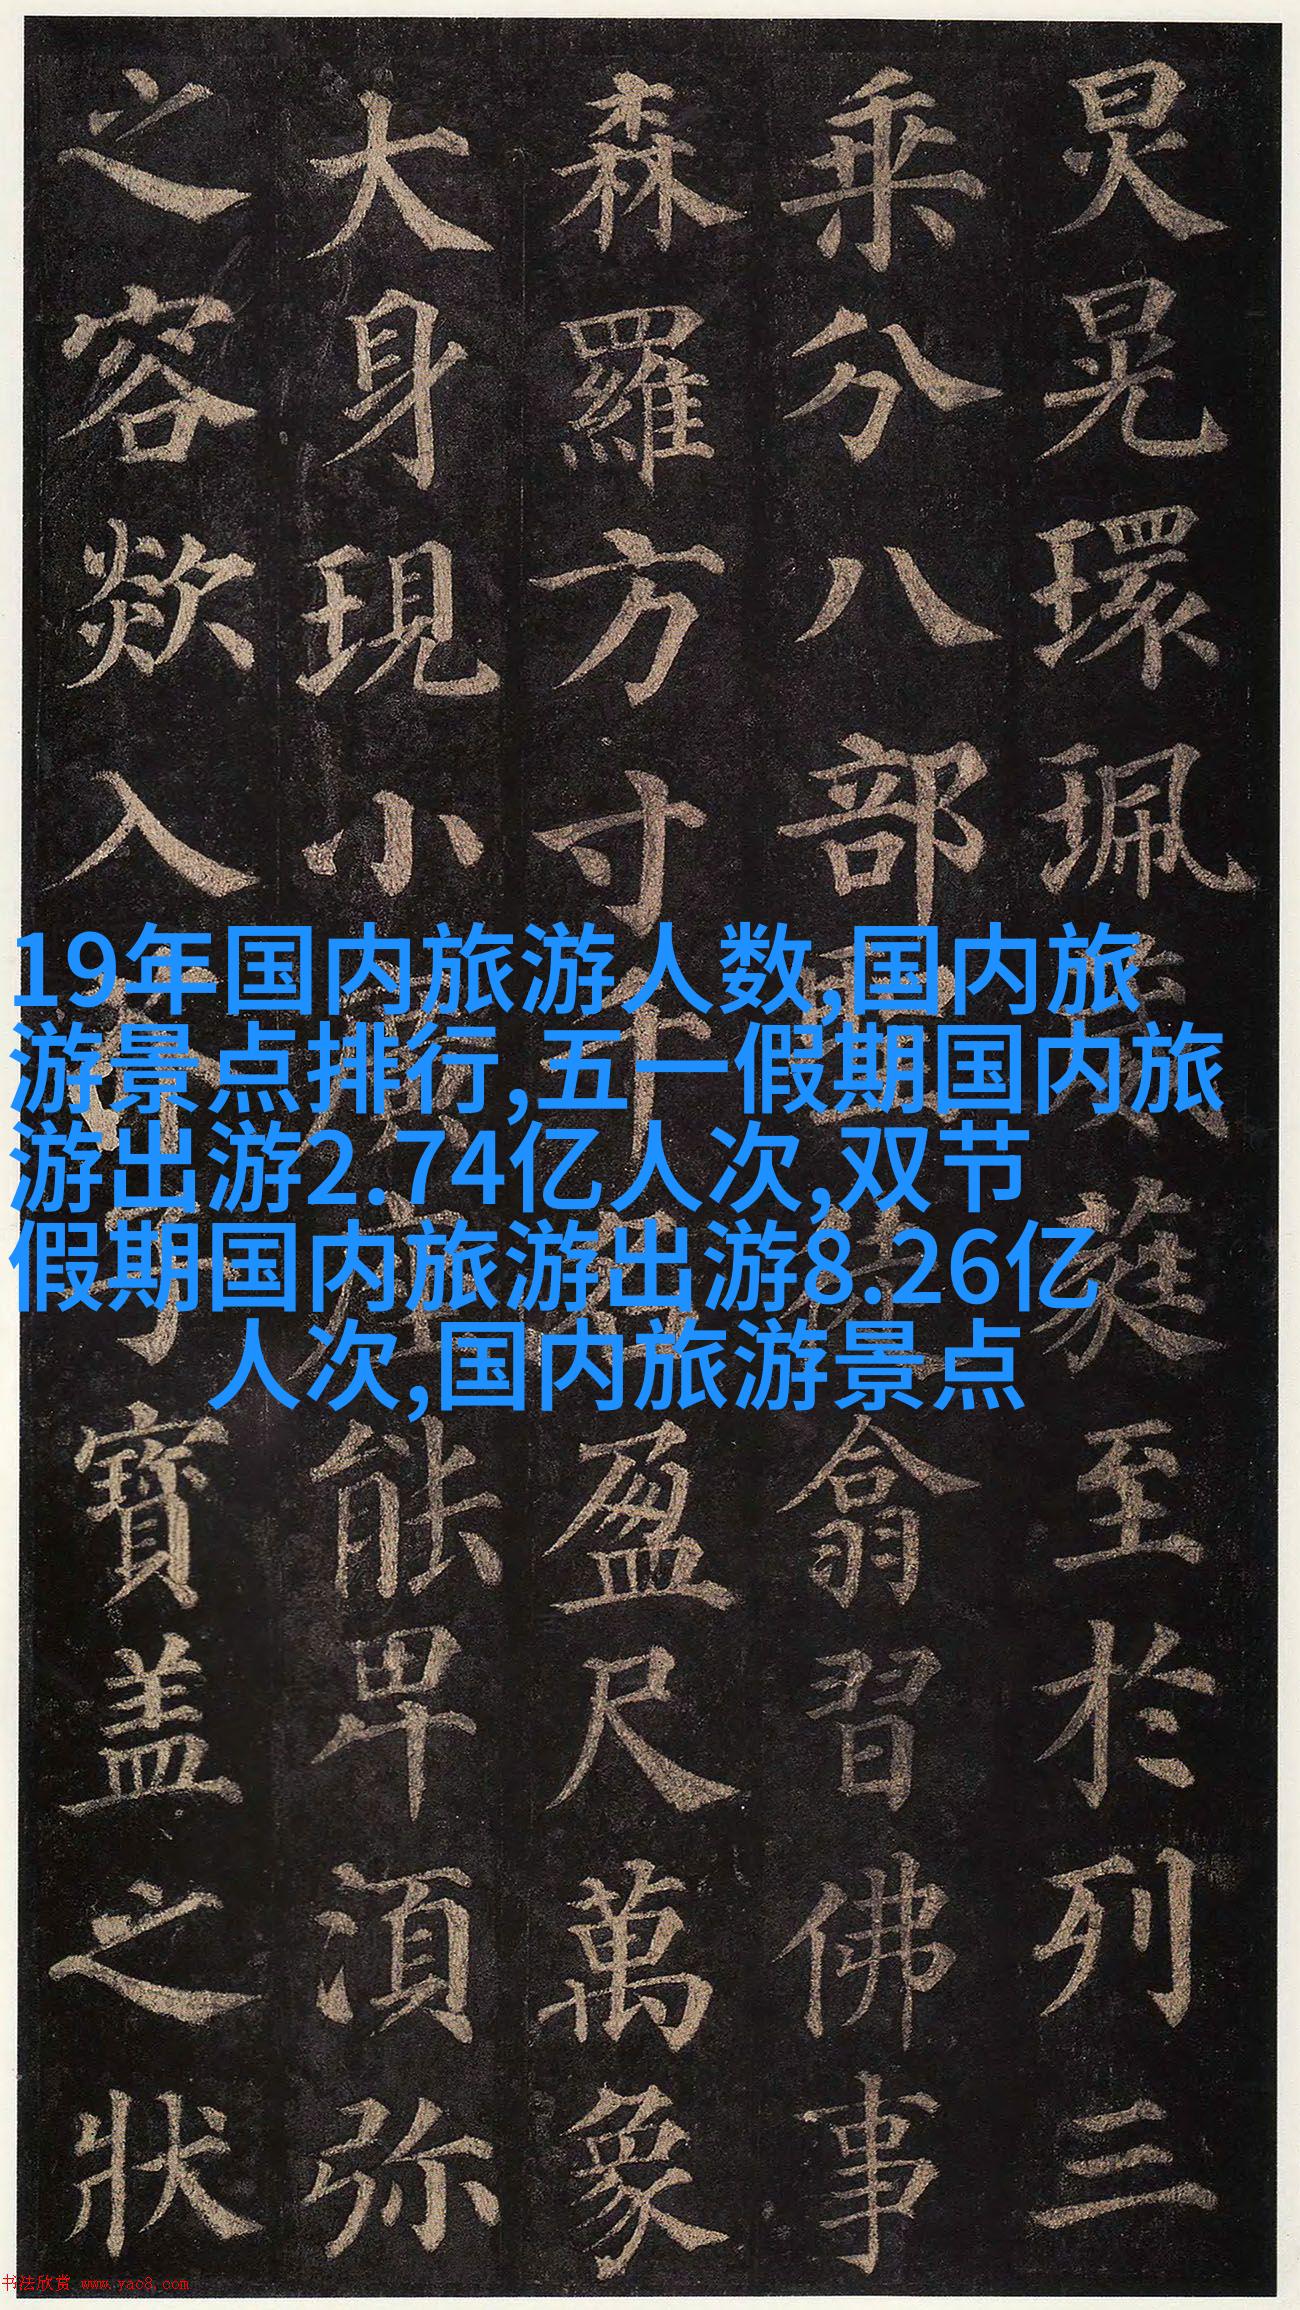 炅晃環珮蕤至於列三
乘分八部翕習佛事
森羅方寸盈尺萬象
大身現小能卑湏弥
之容欻入寶盖之狀
19年国内旅游人数,国内旅
游景点排行,五一假期国内旅
游出游2.74亿人次,双节
假期国内旅游出游8.26亿
人次,国内旅游景点
书法欣赏 www.yac8.com